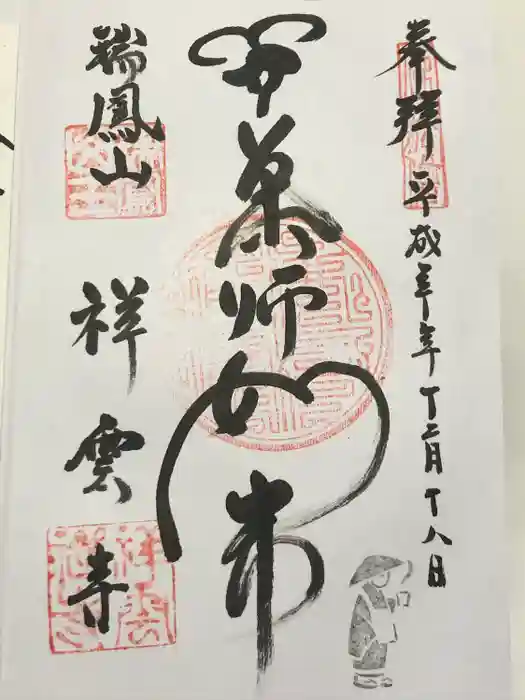 奉拝 平成 年十二月十八日
薬師如来
瑞鳳山
祥雲寺